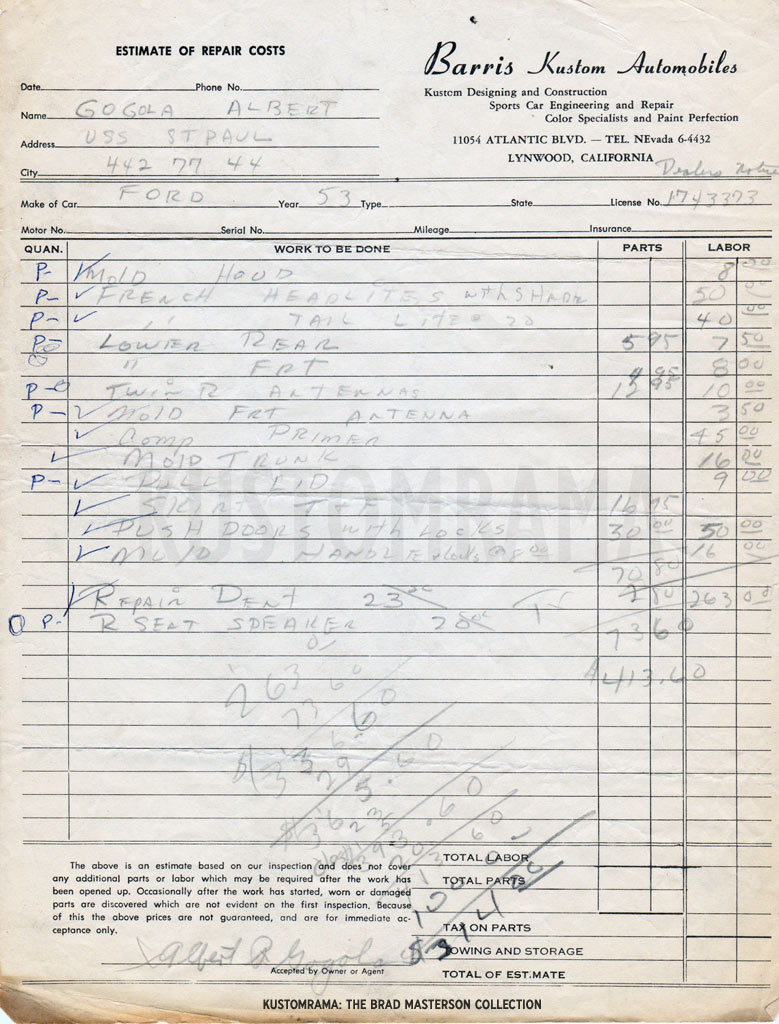 ESTIMATE OF REPAIR COSTS
Barris Kustom Automobiles
Kustom Designing and Construction
Sports Car Engineering and Repair
Color Specialists and Paint Perfection
11054 ATLANTIC BLVD. — TEL. NEvada 6-4432
LYNWOOD, CALIFORNIA
Date Phone No.
Name GOGOLA ALBERT
Address USS ST PAUL
City 442 77 44
Dealers
Make of Car FORD Year 53 Type State License No. 1743373
Motor No. Serial No. Mileage Insurance
QUAN. WORK TO BE DONE PARTS LABOR
P- MOLD HOOD 8 00
P- FRENCH HEADLITES with SHADE 50 00
P- " TAIL LITES 40 00
P- LOWER REAR 5 95 7 50
" FRT 4 95 8 00
P- TWIN R ANTENNAS 12 95 10 00
P- MOLD FRT ANTENNA 3 50
COMP PRIMER 45 00
MOLD TRUNK 16 00
P- PULL LID 9 00
SKIRT 16 95
PUSH DOORS with LOCKS 30 00 50 00
MOLD HANDLE 16 00
70 80
REPAIR DENT 23 2 80 263 00
O P- R SEAT SPEAKER 28 73 60
413.60
263
73 60
KUSTOMRAMA
The above is an estimate based on our inspection and does not cover
any additional parts or labor which may be required after the work has
been opened up. Occasionally after the work has started, worn or damaged
parts are discovered which are not evident on the first inspection. Because
of this the above prices are not guaranteed, and are for immediate ac-
ceptance only.
TOTAL LABOR
TOTAL PARTS
100 00
$314 00
TAX ON PARTS
TOWING AND STORAGE
TOTAL OF ESTIMATE
Albert R Gogola
Accepted by Owner or Agent
KUSTOMRAMA: THE BRAD MASTERSON COLLECTION